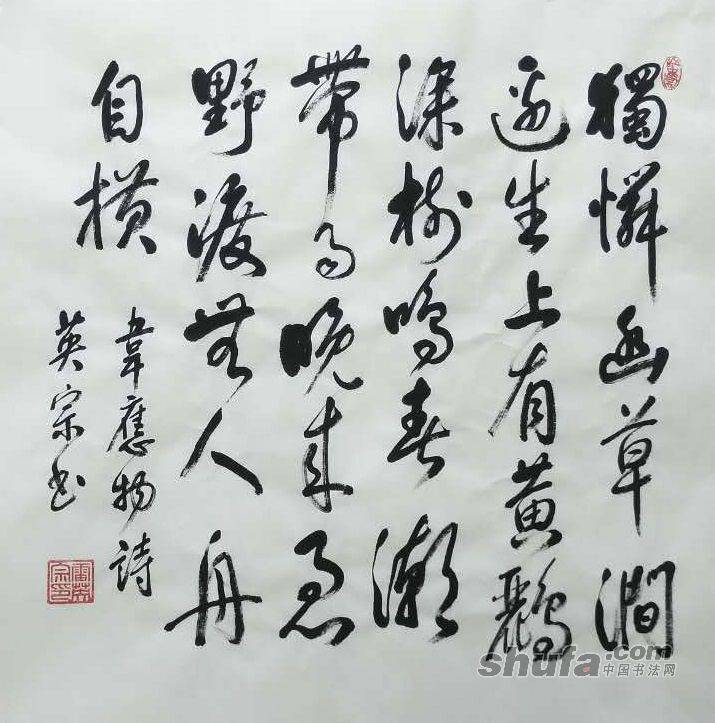 獨憐幽草澗
邊生上有黃鸝
深樹鳴春潮
帶雨晚來急
野渡無人舟
自橫
韋應物詩
英宗書
雷英宗印
shufa.com
中国书法网